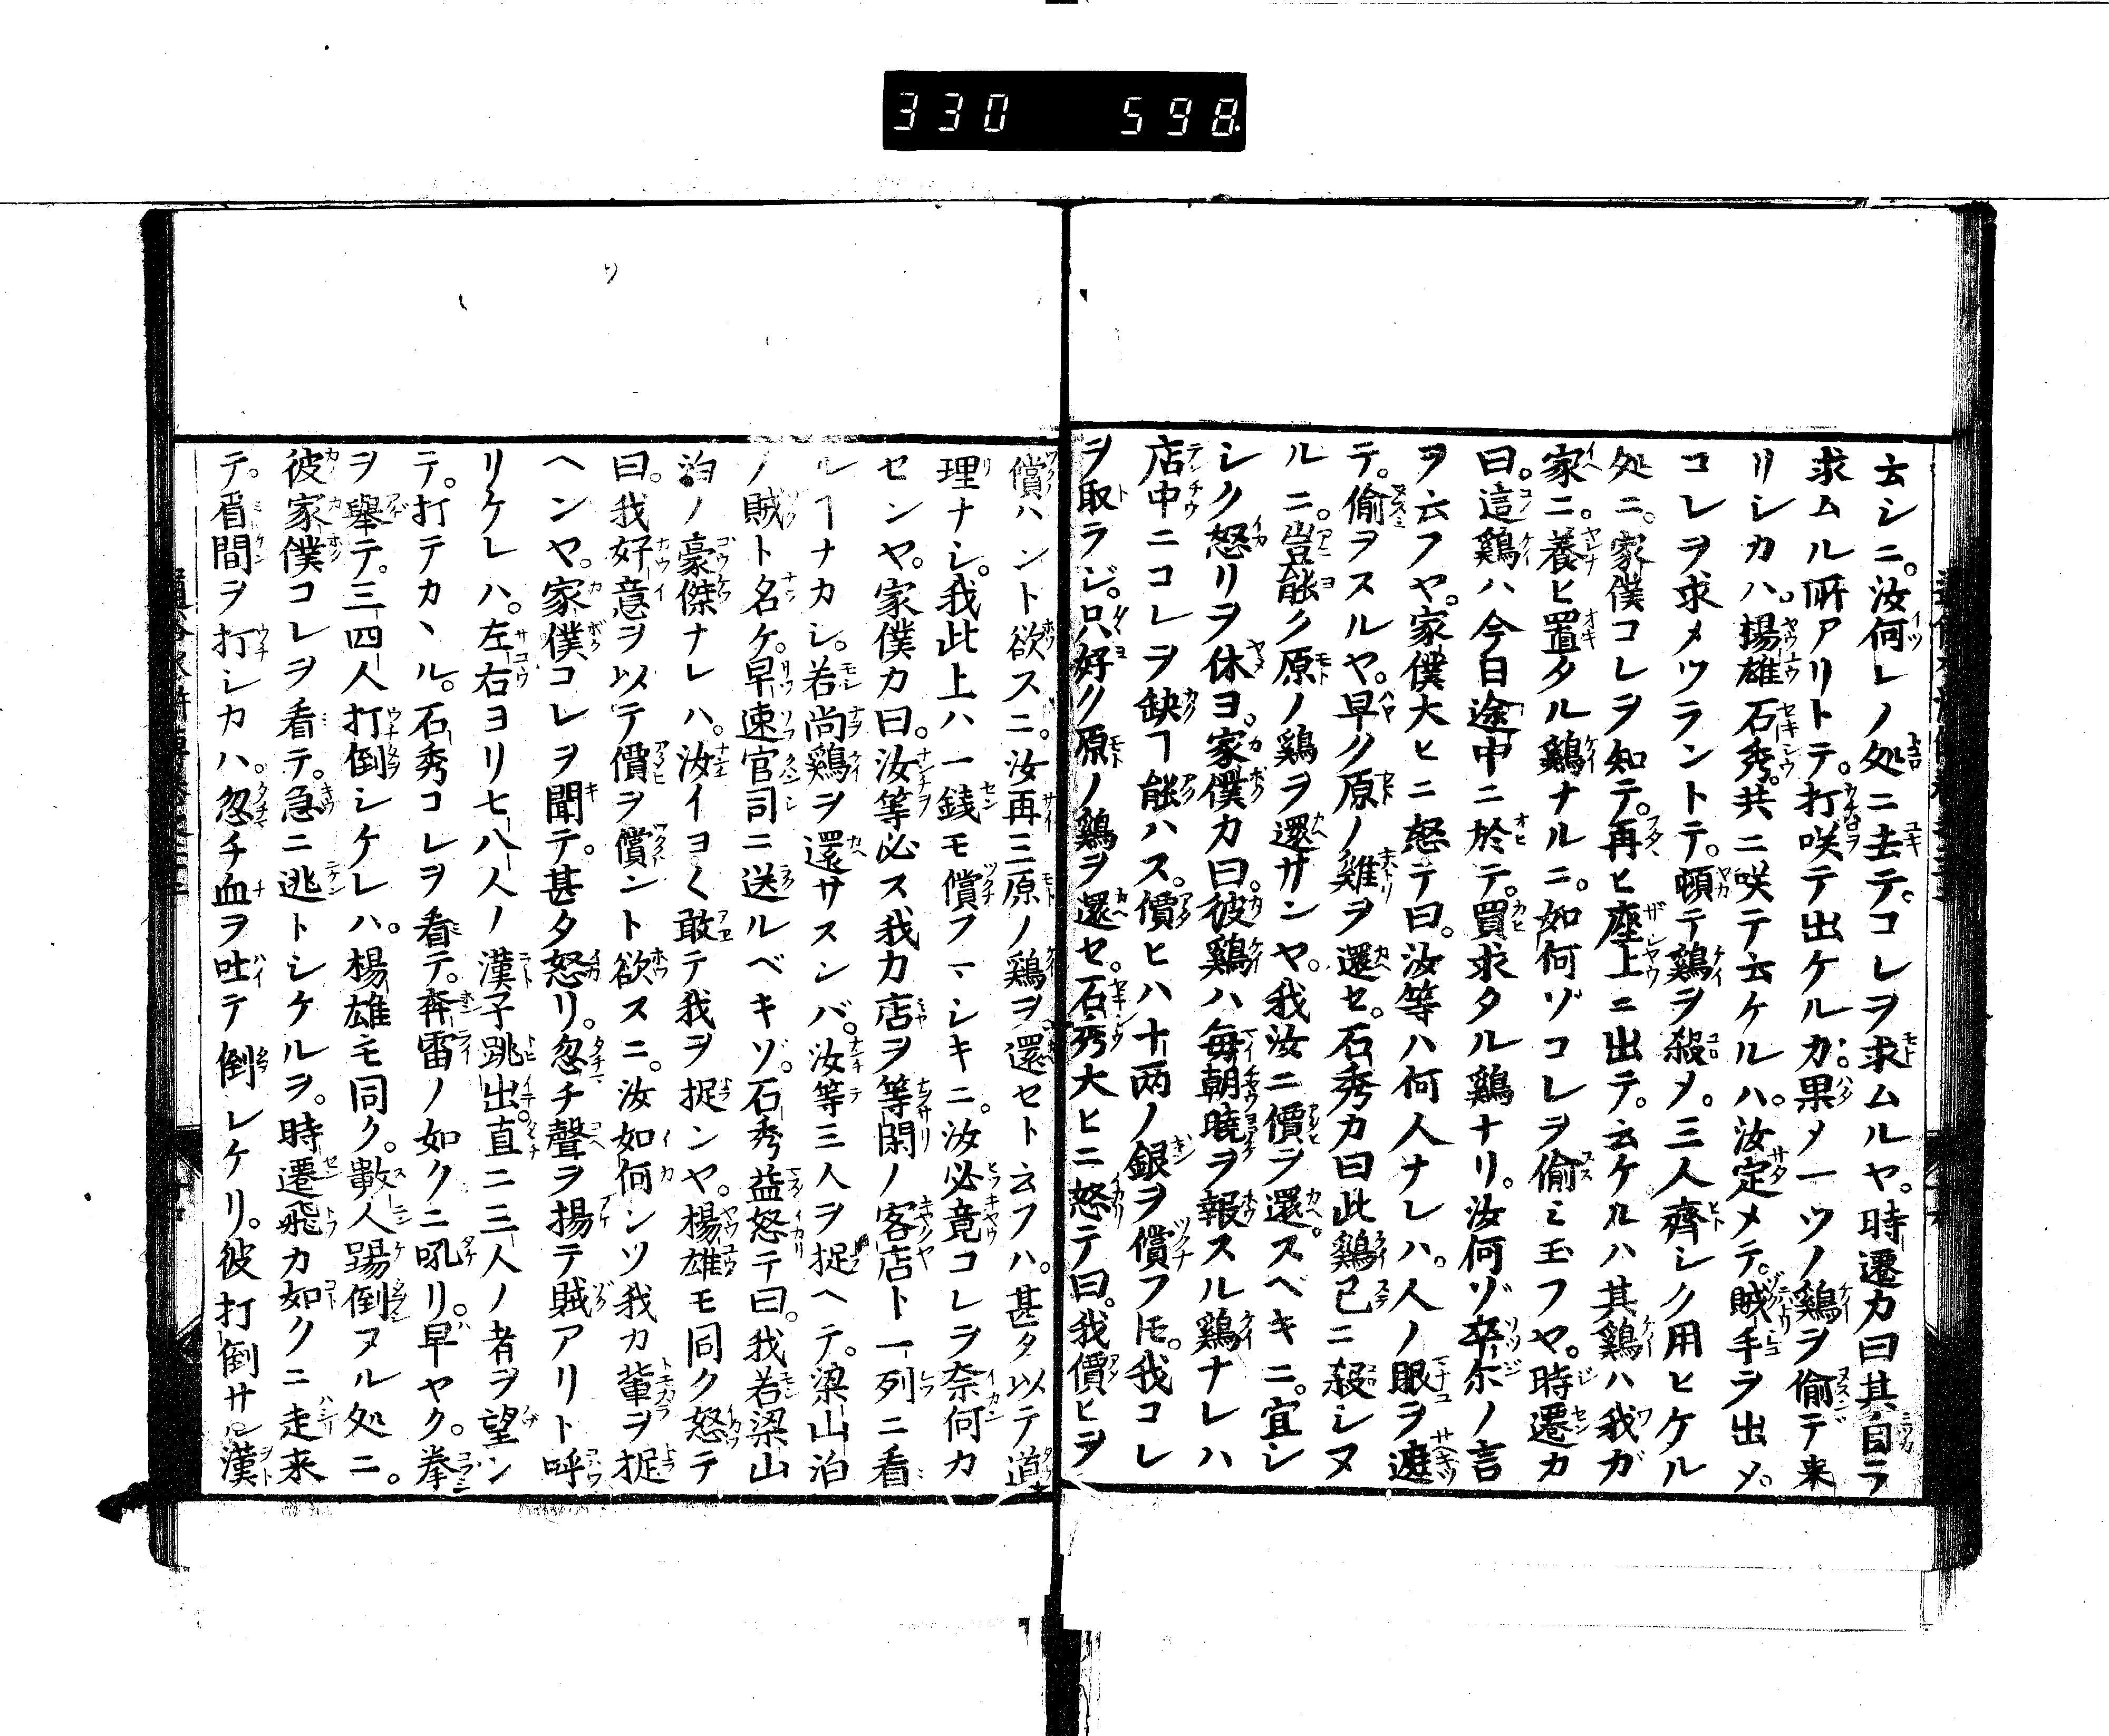 330 598
去シニ。汝何レノ処ニ去テ。コレヲ求ムルヤ。時遷カ曰其自ラ
求ムル所アリトテ。打咲テ出ケルカ。果メ一ツノ鶏ヲ偷テ来
リシカハ。楊雄石秀。共ニ咲テ云ケルハ。汝定メテ。賊手ヲ出メ。
コレヲ求メツラントテ。頓テ鶏ヲ殺メ。三人齊シク用ヒケル
処ニ。家僕コレヲ知テ。再ヒ座上ニ出テ。云ケルハ其鶏ハ我ガ
家ニ。養ヒ置タル鶏ナルニ。如何ゾコレヲ偷ミ玉フヤ。時遷カ
曰。這鶏ハ今日途中ニ於テ。買求タル鶏ナリ。汝何ゾ卒尓ノ言
ヲ云フヤ。家僕大ヒニ怒テ曰。汝等ハ何人ナレハ。人ノ眼ヲ遮
テ。偷ヲスルヤ。早ク原ノ雞ヲ還セ。石秀カ曰此鶏已ニ殺シヌ
ルニ。豈能ク原ノ鶏ヲ還サンヤ。我汝ニ價ヲ還スベキニ。宜シ
シク怒リヲ休ヨ。家僕カ曰。彼鶏ハ毎朝曉ヲ報スル鶏ナレハ
店中ニコレヲ缺ヿ能ハス。價ヒハ十両ノ銀ヲ償フ𪜈。我コレ
ヲ取ラジ。只好ク原ノ鶏ヲ還セ。石秀大ヒニ怒テ曰。我價ヒヲ
償ハント欲スニ。汝再三原ノ鶏ヲ還セト云フハ。甚タ以テ道
理ナシ。我此上ハ一錢モ償フマシキニ。汝必竟コレヲ奈何カ
センヤ。家僕カ曰。汝等必ス我カ店ヲ等閑ノ客店ト一列ニ看
ルヿナカシ。若尚鶏ヲ還サスンバ。汝等三人ヲ捉ヘテ。梁山泊
ノ賊ト名ケ。早速官司ニ送ルベキゾ。石秀益怒テ曰。我若梁山
泊ノ豪傑ナレハ。汝イヨく敢テ我ヲ捉ンヤ。楊雄モ同ク怒テ
曰。我好意ヲ以テ價ヲ償ント欲スニ。汝如何ンソ我カ輩ヲ捉
ヘンヤ。家僕コレヲ聞テ。甚タ怒リ。忽チ聲ヲ揚テ賊アリト呼
リケレハ。左右ヨリ七八人ノ漢子跳出。直ニ三人ノ者ヲ望ン
テ。打テカヽル。石秀コレヲ看テ。奔雷ノ如クニ吼リ。早ヤク。拳
ヲ舉テ。三四人打倒シケレハ。楊雄モ同ク。數人踢倒ヌル処ニ。
彼家僕コレヲ看テ。急ニ逃トシケルヲ。時遷飛カ如クニ走来
テ。眉間ヲ打シカハ。忽チ血ヲ吐テ倒レケリ。彼打倒サレ漢